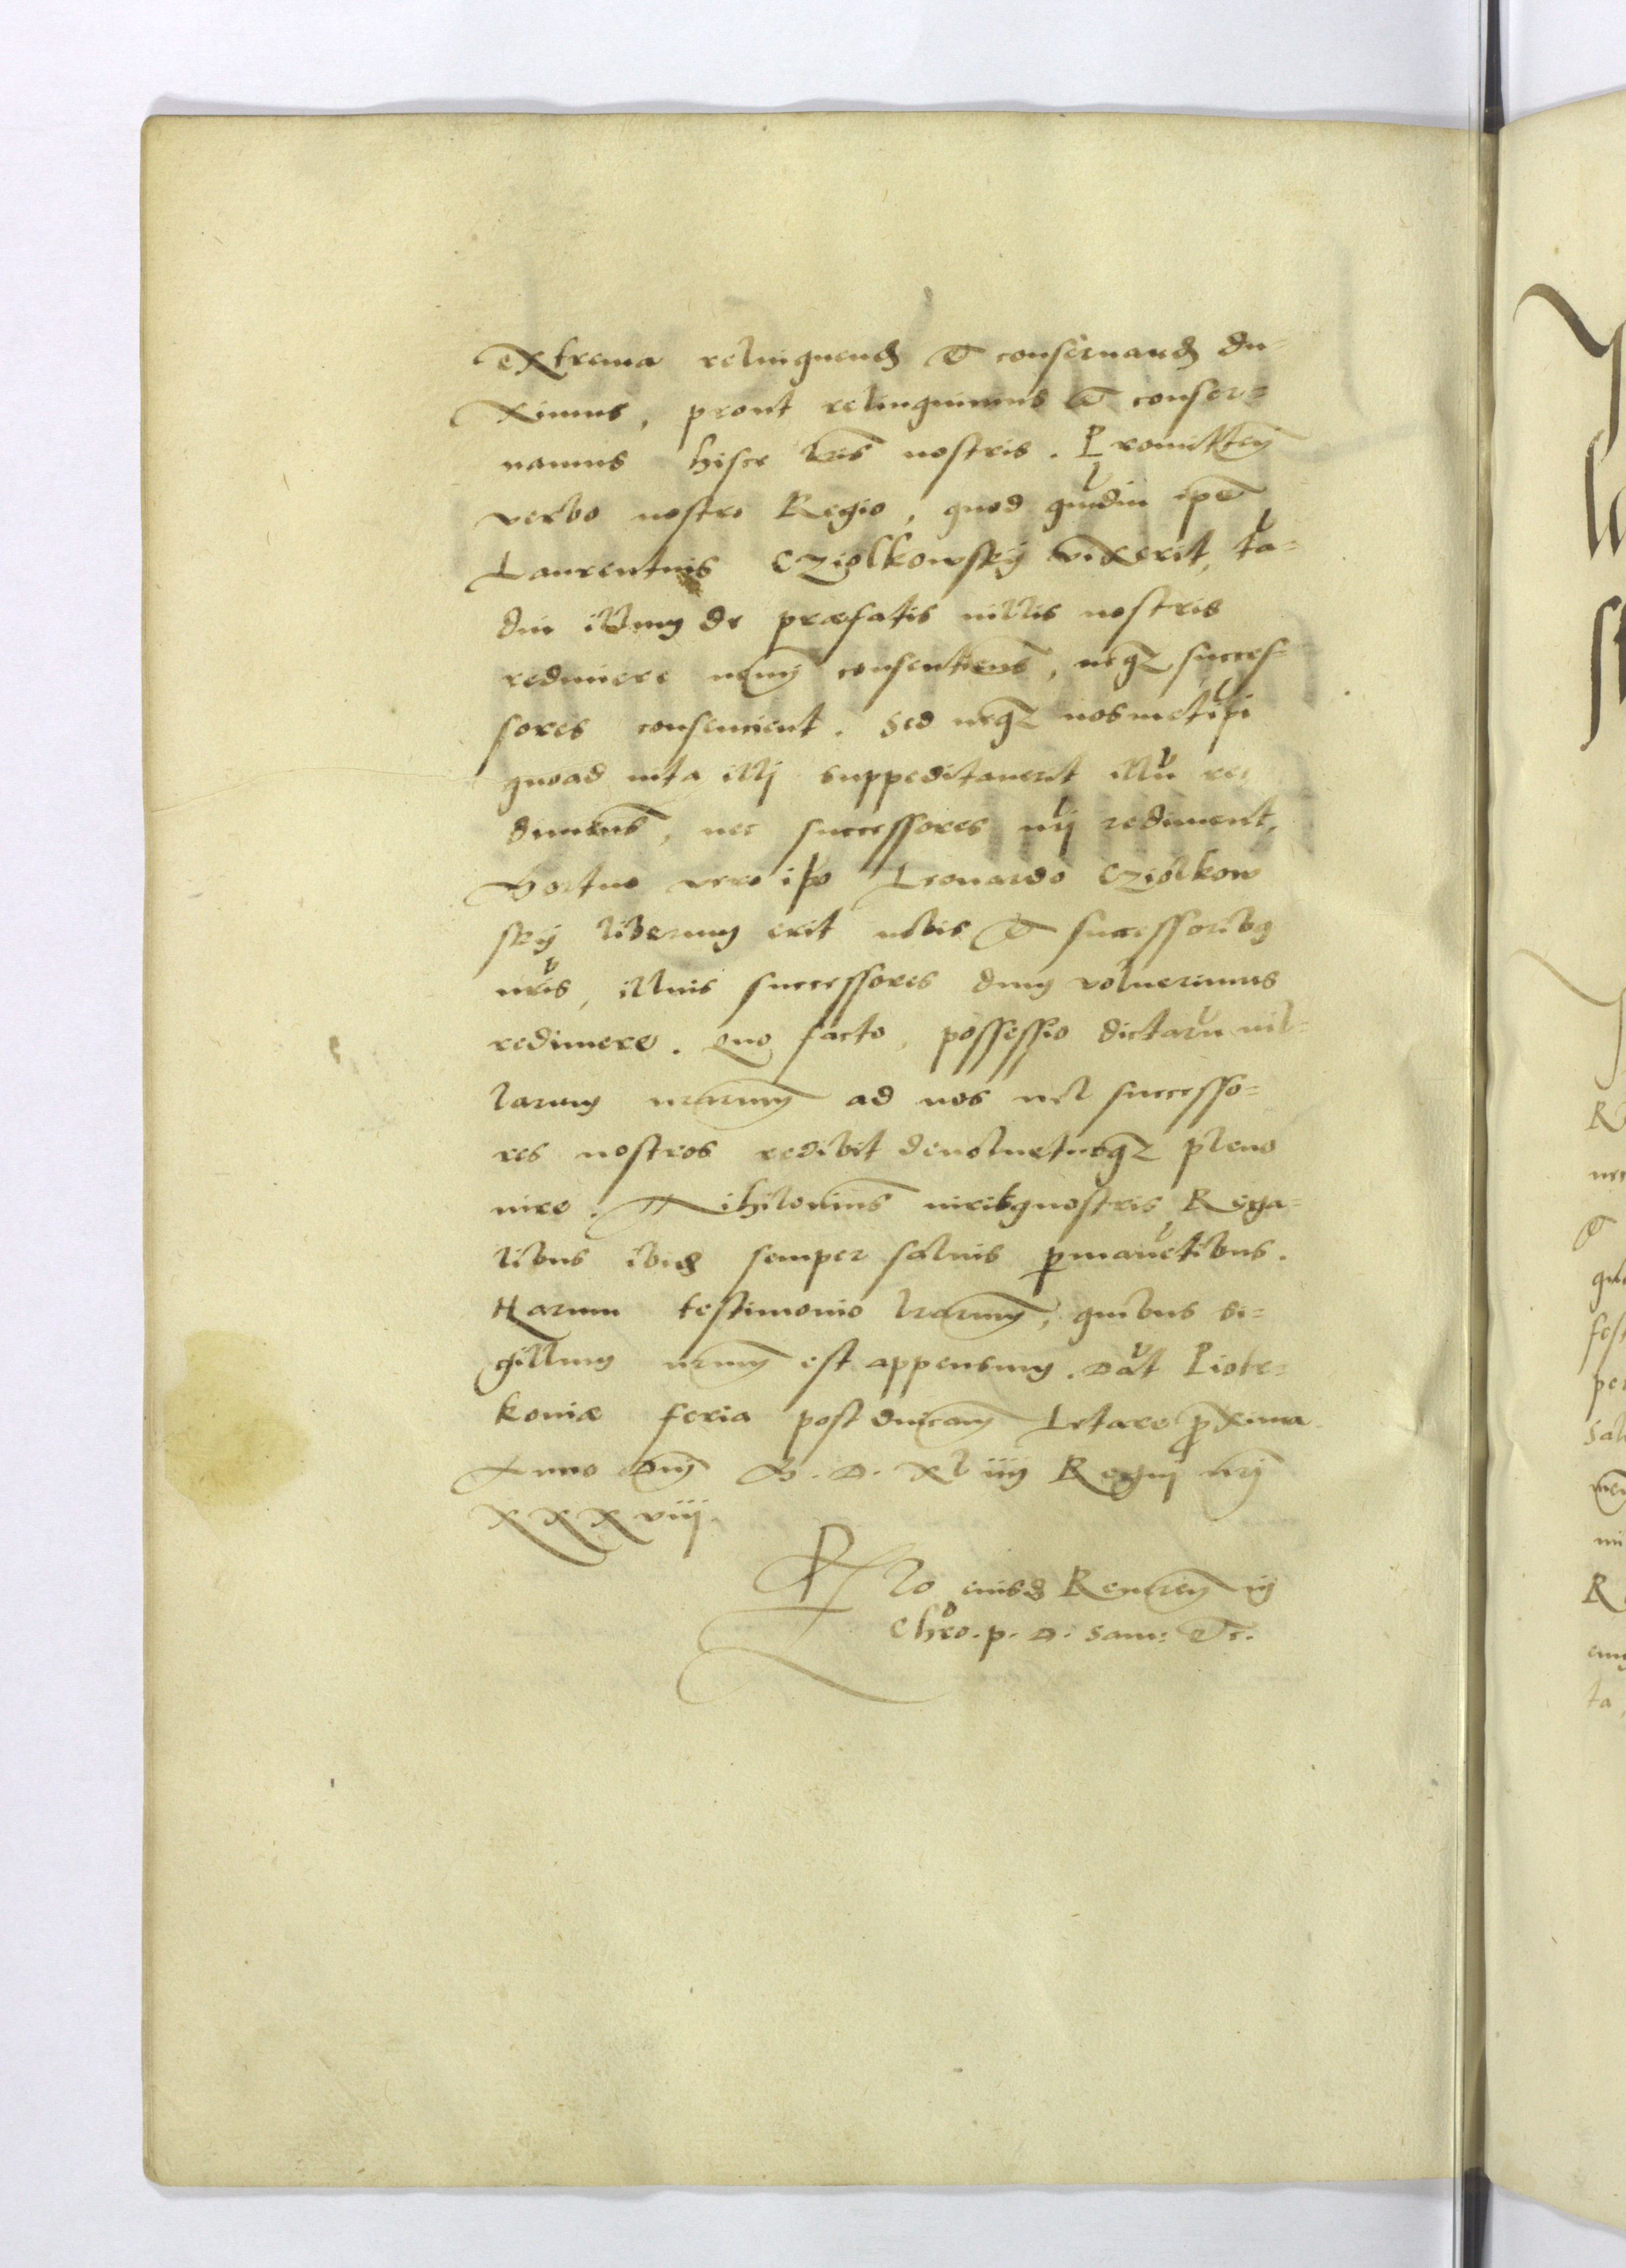 extrema relinquend & conseruand du-
ximus, prout relinquimus & conser-
uamus hisce lris nostris. Promitten
verbo nostro Regio, quod qudiu ipe
Laurentius Cziolkowskij vixerit, ta-
diu illum de præfatis uillis nostris
redimere nemj consentiems, neqz succes-
sores consencient. Sed neqz nosmetipi
quoad uita illj suppeditauerit illu re
dimems, nec successores nrj rediment,
Mortuo vero ipo Leonardo Cziolkow
skij liberum erit nobis & successoribq
nris, illius successores dum voluerimus
redimere. Quo facto, possessio dictaru uil-
larum nrarum ad nos uel successo-
res nostros redibit deuolueturqz pleno
iure. Nihilomins iuribq nostris Rega-
libus ibid semper saluis pmanetibus.
Harum testimonio lrarum, quibus si-
gillum nrum est appensum. Dat Piotr-
koniæ feria post dnicam Letare proxima
Anno Dnj M. D. xl iiij Regnj nrj
xxxviij
Rlo eiusd Reueren in
Chro. p. D. Sam: &c.